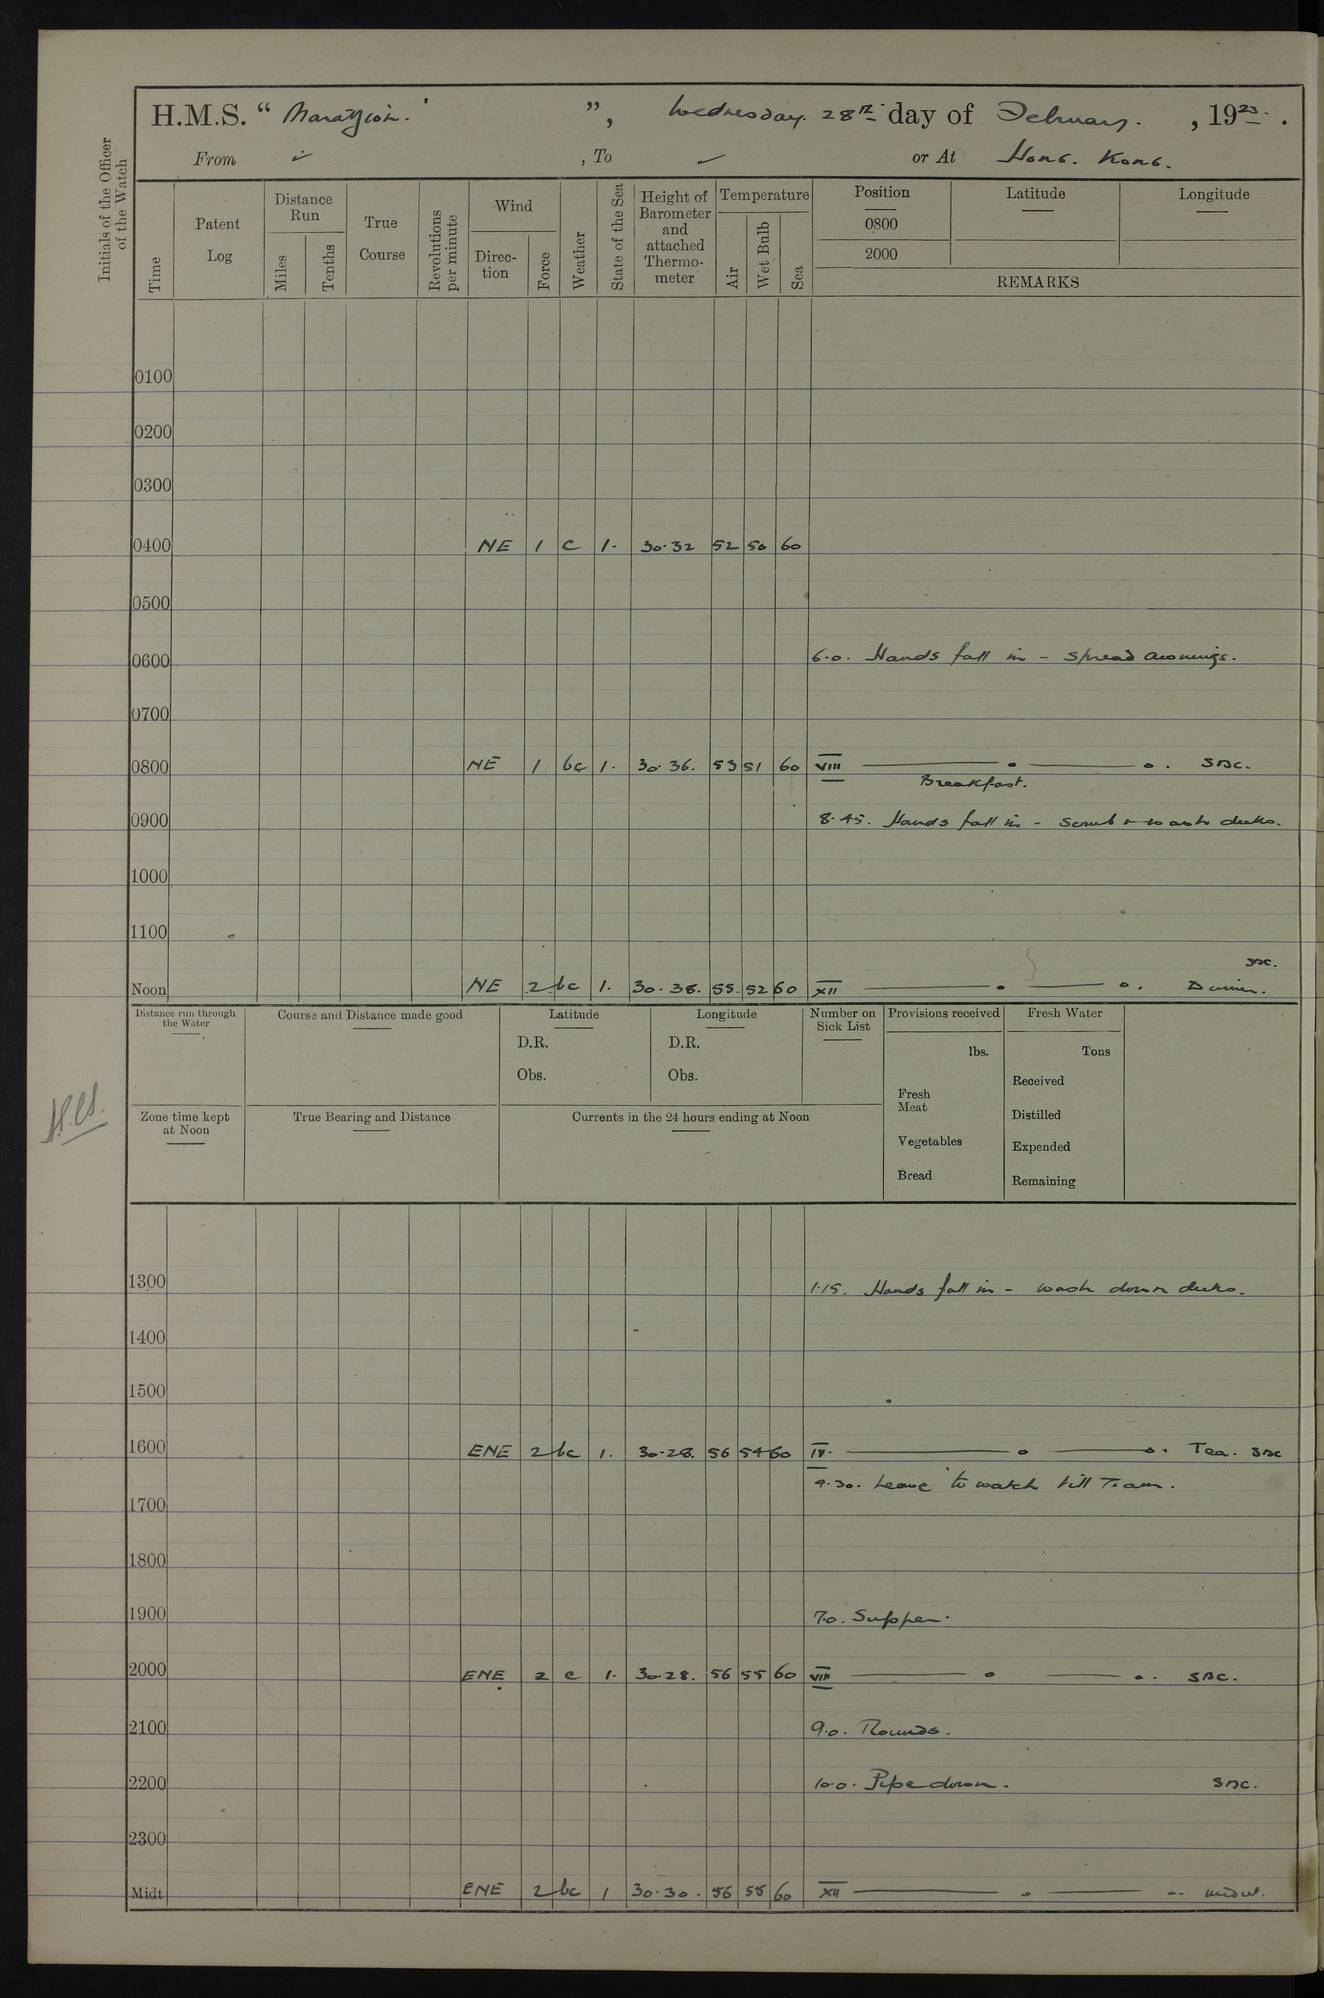 H.M.S. “ Marazion. ”, Wednesday. 28th day of February. , 1923.
From , To or At Hong. Kong.
Initials of the Officer of the Watch
Time
Patent Log
Distance Run
Miles
Tenths
True Course
Revolutions per minute
Wind
Direc-tion
Force
Weather
State of the Sea
Height of Barometer and attached Thermo-meter
Temperature
Air
Wet Bulb
Sea
Position Latitude Longitude
0800
2000
REMARKS
0100
0200
0300
0400 NE 1 c 1. 30.32 52 50 60
0500
0600 6.0. Hands fall in - spread awnings.
0700
0800 NE 1 bc 1. 30.36. 53 51 60 VIII o o. SBC.
Breakfast.
0900 8.45. Hands fall in - scrub & wash decks.
1000
1100
SBC.
Noon NE 2 bc 1. 30.38. 55 52 60 XII o o. Dinner.
Distance run through the Water
Course and Distance made good
Latitude
D.R.
Obs.
Longitude
D.R.
Obs.
Number on Sick List
Provisions received
lbs.
Fresh Meat
Vegetables
Bread
Fresh Water
Tons
Received
Distilled
Expended
Remaining
Zone time kept at Noon
True Bearing and Distance
Currents in the 24 hours ending at Noon
1300 1.15. Hands fall in - wash down decks.
1400
1500
1600 ENE 2 bc 1. 30.28. 56 54 60 IV. o o. Tea. SBC
4.30. Leave to watch till 7 am.
1700
1800
1900 7.0. Supper.
2000 ENE 2 c 1. 30.28. 56 55 60 VIII o o. SBC.
2100 9.0. Rounds.
2200 10.0. Pipe down. SBC.
2300
Midt ENE 2 bc 1 30.30. 56 55 60 XII o